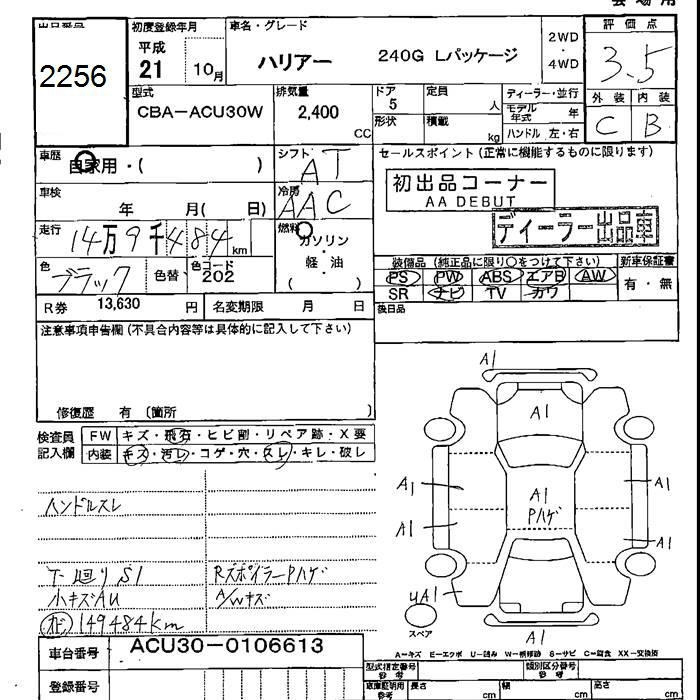 会場用
出品番号
2256
初度登録年月
平成
21
10月
車名・グレード
ハリアー 240G Lパッケージ
2WD
・
4WD
評価点
3.5
型式
CBA-ACU30W
排気量
2,400
CC
ドア
5
定員
人
形状
積載
kg
ディーラー・並行
モデル年式 年
ハンドル 左・右
外装 内装
C B
車歴
自家用・( )
シフト
AT
セールスポイント (正常に機能するものに限ります)
初出品コーナー
AA DEBUT
ディーラー出品車
車検
年 月( 日)
冷房
AAC
走行
14万9千484km
燃料
ガソリン
・
軽・油
( )
色
ブラック
色替
色コード
202
装備品 (純正品に限り○をつけて下さい)
新車保証書
PS PW ABS エアB AW
SR ナビ TV カワ
有・無
R券 13,630 円
名変期限 月 日
後日品
注意事項申告欄 (不具合内容等は具体的に記入して下さい)
修復歴 有 〔箇所 〕
検査員
記入欄
FW キズ・飛石・ヒビ割・リペア跡・X要
内装 キズ・汚レ・コゲ・穴・スレ・キレ・破レ
ハンドルスレ
下廻りS1
Rスポイラーハゲ
小キズAU
A/Wキズ
149484km
A1
A1
A1
A1
A1
Pハゲ
A1
A1
UA1
スペア
A1
A-キズ E-エクボ U-凹み W-板修跡 S-サビ C-腐食 XX-交換済
車台番号
ACU30-0106613
登録番号
型式指定番号
参考
類別区分番号
参考
車庫証明用
参考
長さ cm
幅 cm
高さ cm